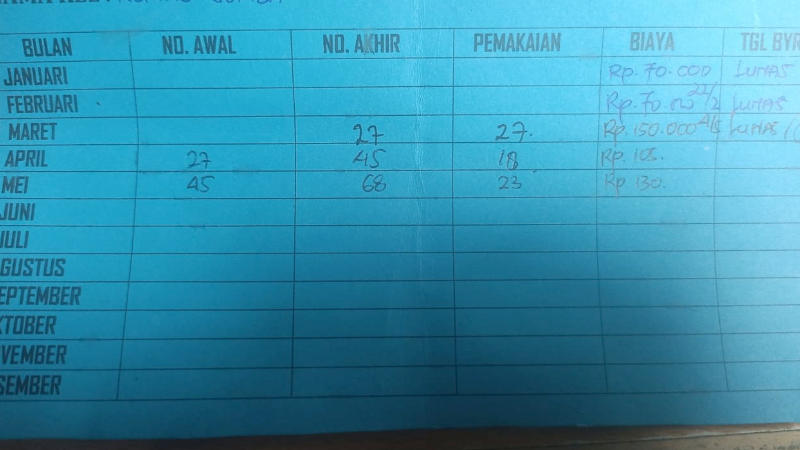 BULAN NO. AWAL NO. AKHIR PEMAKAIAN BIAYA TGL BYR
JANUARI Rp. 70.000 LUNAS
FEBRUARI Rp. 70.000 21/2 LUNAS
MARET 27 27. Rp. 150.000 LUNAS
APRIL 27 45 18 Rp. 105.
MEI 45 68 23 Rp 130.
JUNI
JULI
GUSTUS
EPTEMBER
KTOBER
VEMBER
SEMBER